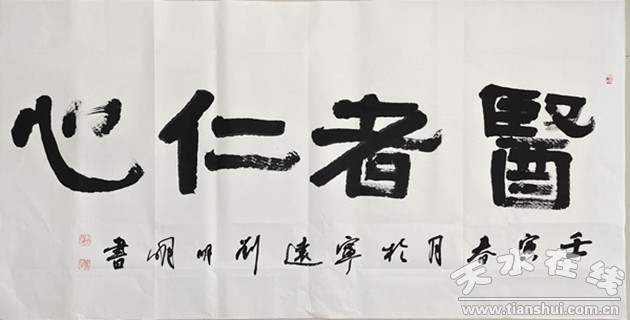 醫者仁心
壬寅春月於寧遠劉書
天水在线
www.tianshui.com.cn